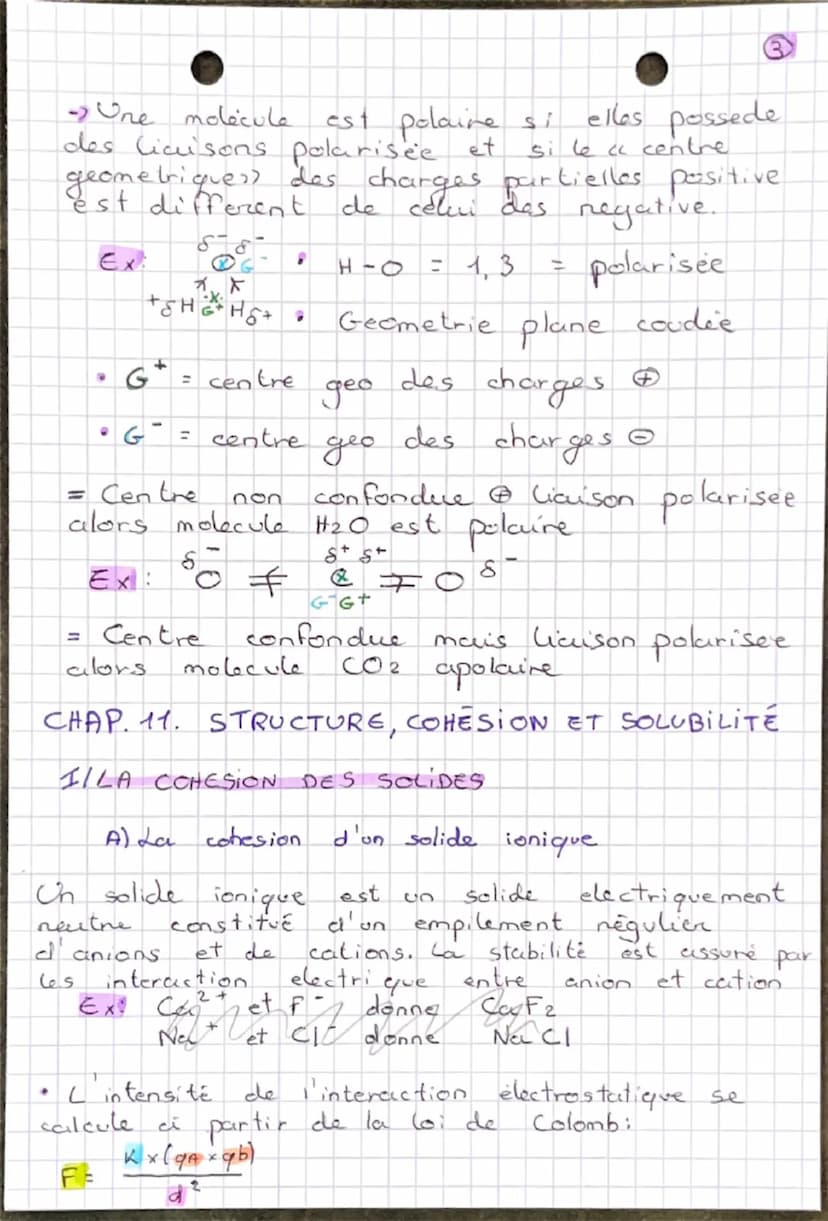 3
-> Une molécule est polaire si elles possede
des liaisons polarisée et si le « centre
geometrique» des charges partielles positive
est different de celui des negative.
δ⁻ δ⁻
Ex: G⁻ • H-O = 1,3 = polarisée
+δH G⁺ Hδ+ • Geometrie plane coudée
• G⁺ = centre geo des charges ⊕
• G⁻ = centre geo des charges ⊖
= Centre non confondue ⊕ liaison polarisée
alors molecule H2O est polaire
δ⁻ δ⁺ δ⁺ δ⁻
Ex: O O
G⁻ G⁺
= Centre confondue mais liaison polarisee
alors molecule CO2 apolaire
CHAP. 11. STRUCTURE, COHÉSION ET SOLUBILITÉ
I/ LA COHESION DES SOLIDES
A) La cohesion d'un solide ionique
Un solide ionique est un solide electriquement
neutre constitué d'un empilement régulier
d'anions et de cations. La stabilité est assuré par
les interaction electrique entre anion et cation
Ex: Ca²⁺ et F⁻ donne CaF2
Na⁺ et Cl⁻ donne NaCl
• L'intensité de l'interaction électrostatique se
calcule à partir de la loi de Colomb:
K×(qA×qb)
F=
d²